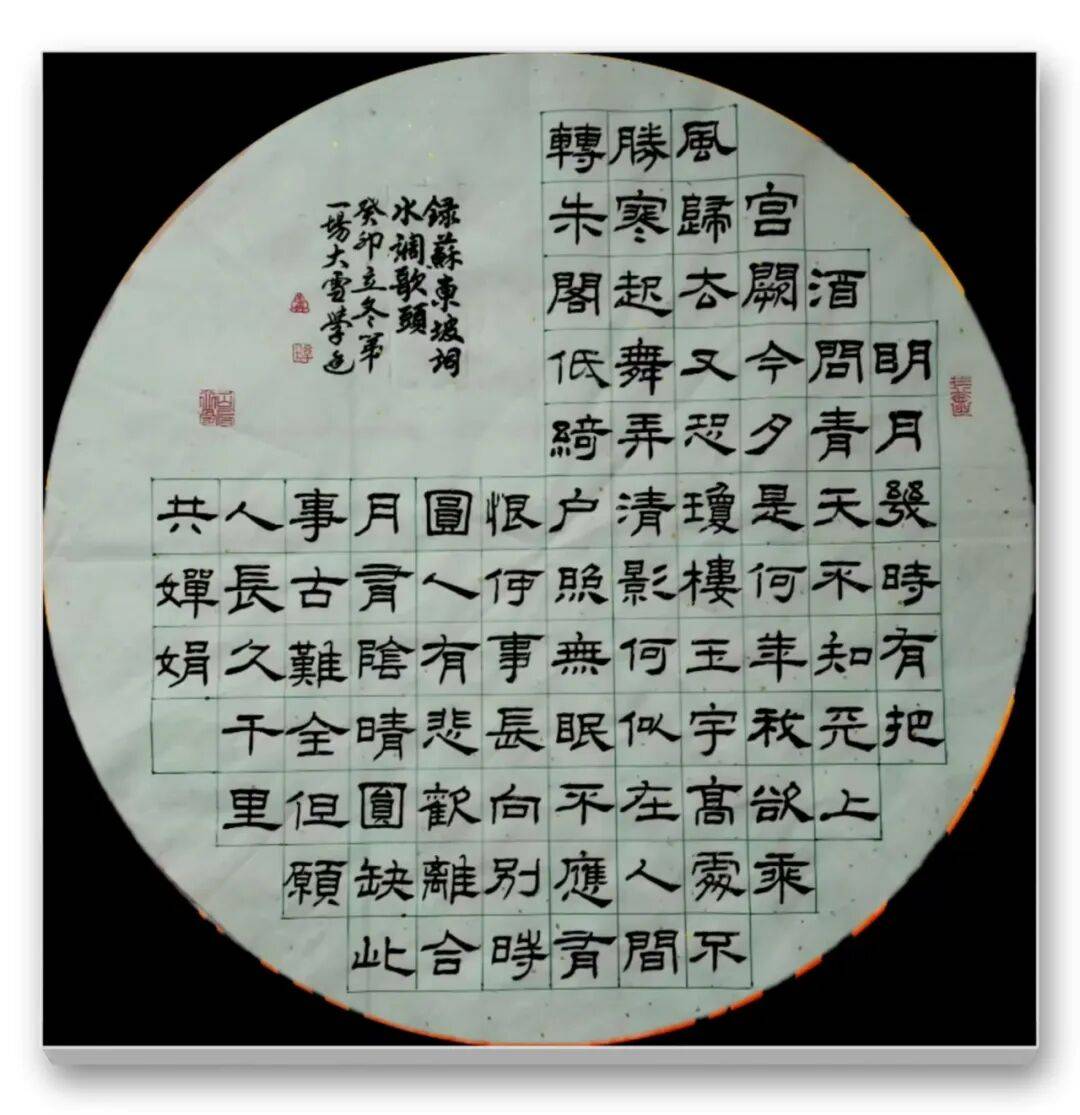 明月幾時有把
酒問青天不知天上
宫闕今夕是何年我欲乘
風歸去又恐瓊樓玉宇高處不
勝寒起舞弄清影何似在人間
轉朱閣低綺户照無眠不應有
恨何事長向别時
圓人有悲歡離合
月有陰晴圓缺此
事古難全但願
人長久千里
共嬋娟
録蘇東坡詞
水調歌頭
癸卯立冬第
一場大雪學